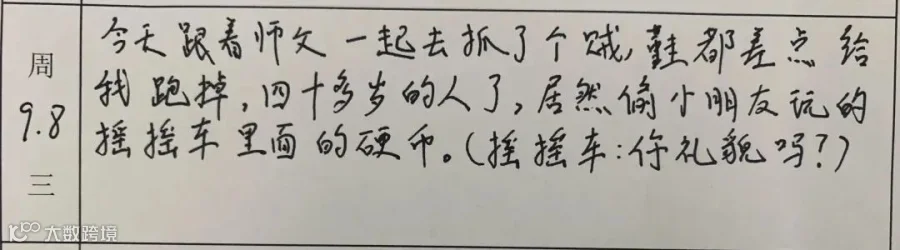 周
9.8
三
今天跟着师父一起去抓了个贼,鞋都差点给
我跑掉,四十多岁的人了,居然偷小朋友玩的
摇摇车里面的硬币。(摇摇车:你礼貌吗?)
大数跨境